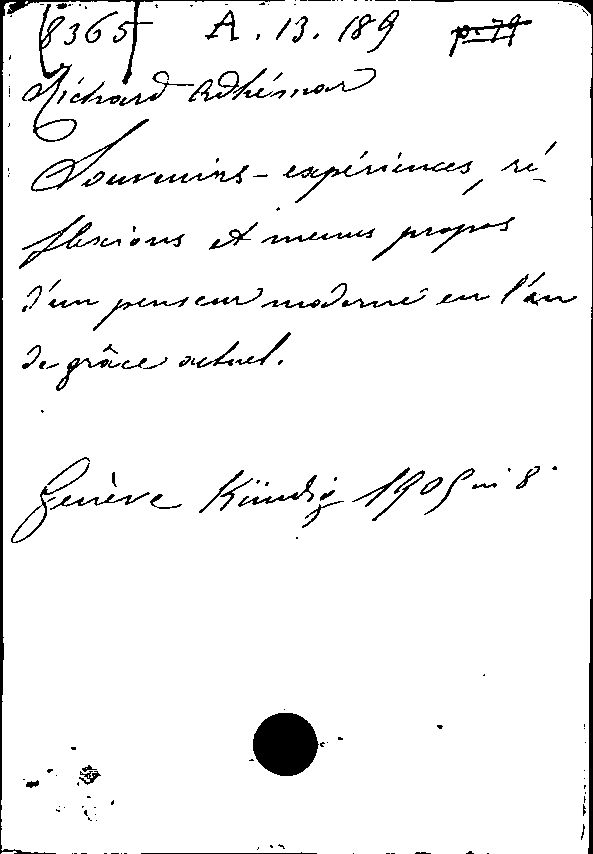 (8365) A. 13. 189 p. 79
Richard Adhémar
Souvenirs - expériences, ré-
flexions et menus propos
d'un penseur moderne en l'an
de grâce actuel.
Genève Kündig 1905 in 8°